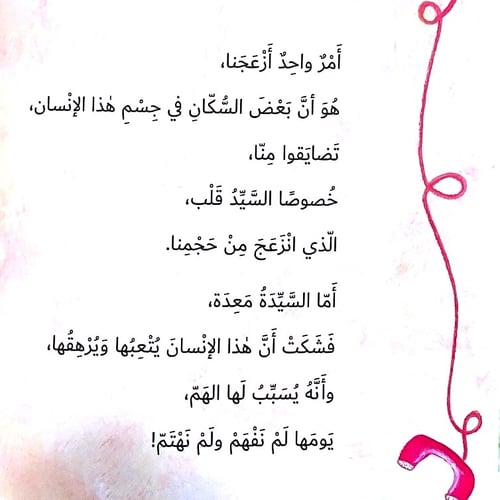 أَمْرٌ واحِدٌ أَزْعَجَنا،
هُوَ أنَّ بَعْضَ السُّكّانِ في جِسْمِ هٰذا الإنْسان،
تَضايَقوا مِنّا،
خُصوصًا السَّيِّدُ قَلْب،
الّذي انْزَعَجَ مِنْ حَجْمِنا.
أَمّا السَّيِّدَةُ مَعِدَة،
فَشَكَتْ أَنَّ هٰذا الإنْسانَ يُتْعِبُها وَيُرْهِقُها،
وأَنَّهُ يُسَبِّبُ لَها الهَمّ،
يَومَها لَمْ نَفْهَمْ ولَمْ نَهْتَمّ!